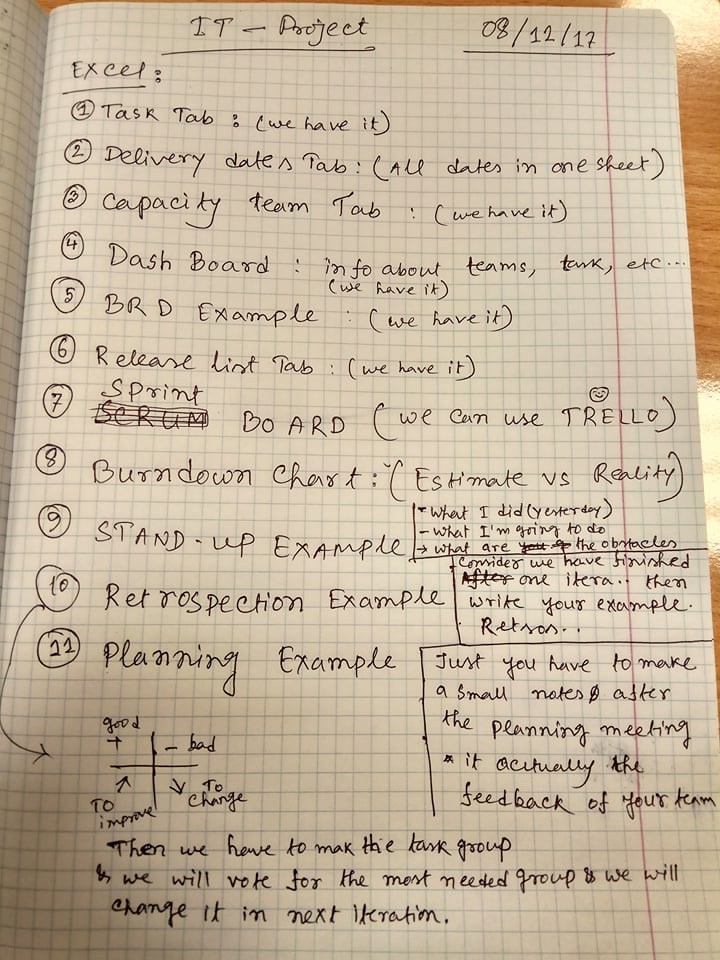 IT - Project 08/12/17
Excel:
① Task Tab : (we have it)
② Delivery dates Tab : (All dates in one sheet)
③ Capacity team Tab : (we have it)
④ Dash Board : info about teams, task, etc...
(we have it)
⑤ BRD Example : (we have it)
⑥ Release list Tab : (we have it)
Sprint
⑦ SCRUM BOARD (we can use TRELLO)
⑧ Burndown Chart : (Estimate vs Reality)
- What I did (yesterday)
- What I'm going to do
⑨ STAND-UP EXAMPLE → what are the obstacles
Consider we have finished
After one itera.. then
⑩ Retrospection Example write your example.
Retros..
⑪ Planning Example Just you have to make
a small notes after
the planning meeting
* it acitually the
feedback of your team
good
+ - bad
↗ TO improve ↘ TO change
Then we have to mak the task group
& we will vote for the most needed group & we will
change it in next iteration.